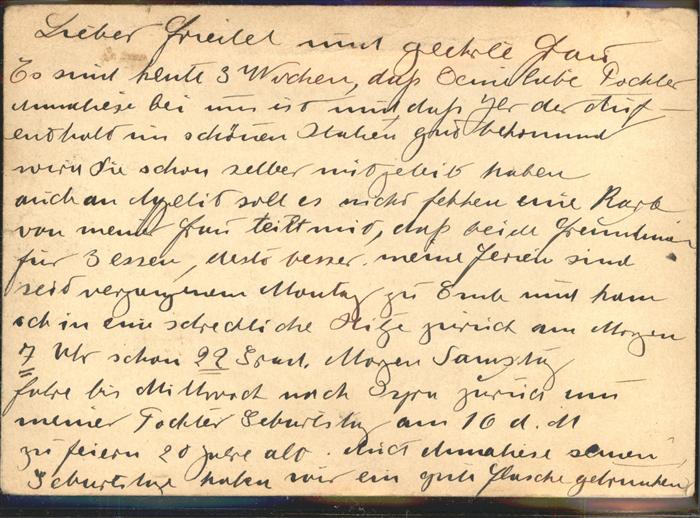 Lieber Freund und geehrte Frau
Es sind heute 3 Wochen, daß Deine liebe Tochter
Annaliese bei uns ist und daß Ihr der Auf-
enthalt im schönen Italien gut bekommt
wird Sie schon selber mitgeteilt haben
auch an Appetit soll es nicht fehlen eine Karte
von meiner Frau teilt mir mit, daß beide
für 3 essen, desto besser. meine Ferien sind
seid vergangenem Montag zu Ende und kam
ich in eine schreckliche Hitze zurück am Morgen
7 Uhr schon 22 Grad. Morgen Samstag
fahre bis Mittwoch nach zurück um
meiner Tochter Geburtstag am 16 d. M
zu feiern 20 Jahre alt. Auf Annaliese
Geburtstag haben wir ein gute Flasche getrunken